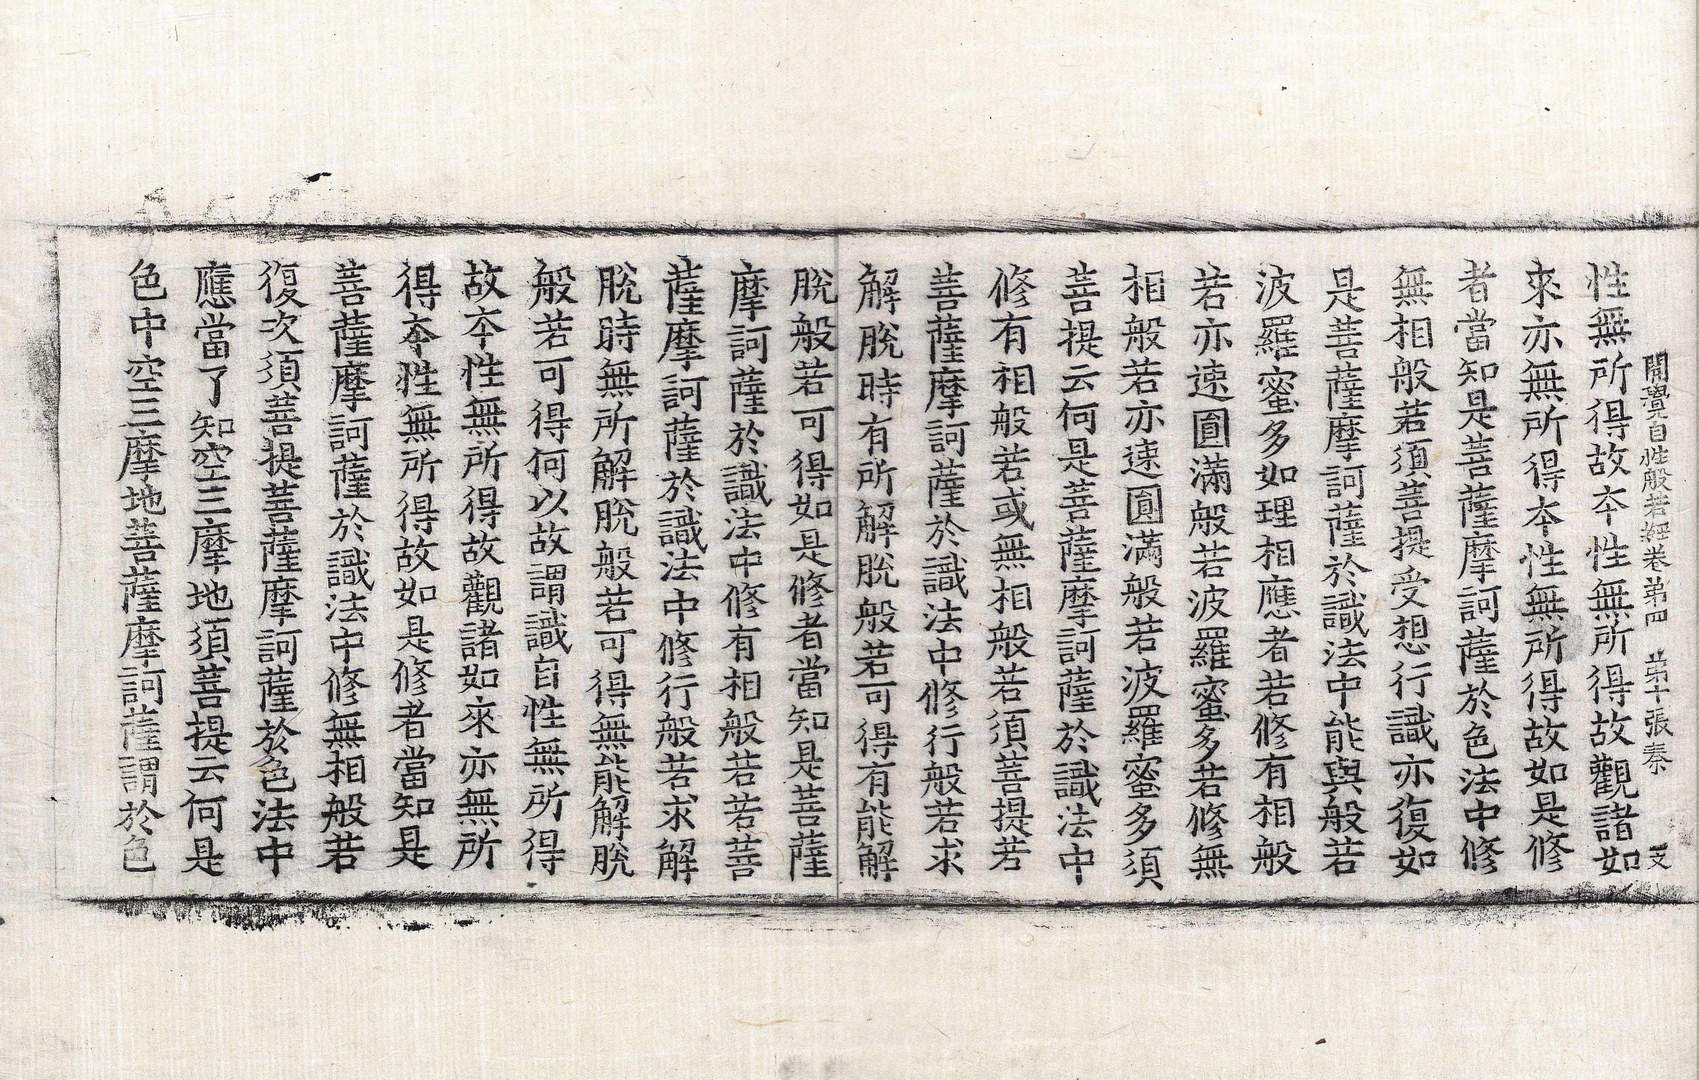 開覺自性般若經卷第四　第十張　秦　文
性無所得故本性無所得故觀諸如
來亦無所得本性無所得故如是修
者當知是菩薩摩訶薩於色法中修
無相般若須菩提受想行識亦復如
是菩薩摩訶薩於識法中能與般若
波羅蜜多如理相應者若修有相般
若亦速圓滿般若波羅蜜多若修無
相般若亦速圓滿般若波羅蜜多須
菩提云何是菩薩摩訶薩於識法中
修有相般若或無相般若須菩提若
菩薩摩訶薩於識法中修行般若求
解脫時有所解脫般若可得有能解
脫般若可得如是修者當知是菩薩
摩訶薩於識法中修有相般若若菩
薩摩訶薩於識法中修行般若求解
脫時無所解脫般若可得無能解脫
般若可得何以故謂識自性無所得
故本性無所得故觀諸如來亦無所
得本性無所得故如是修者當知是
菩薩摩訶薩於識法中修無相般若
復次須菩提菩薩摩訶薩於色法中
應當了知空三摩地須菩提云何是
色中空三摩地菩薩摩訶薩謂於色